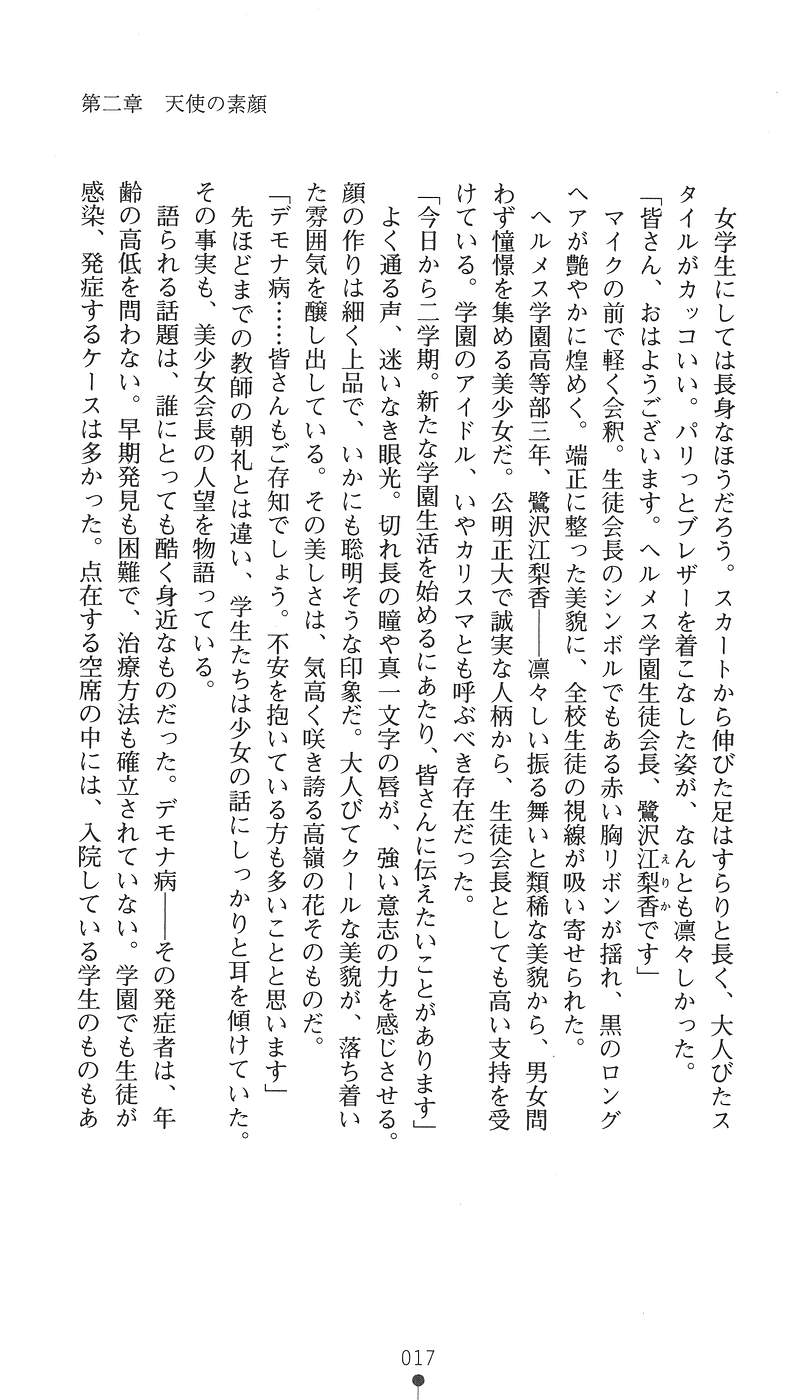 第二章　天使の素顔
女学生にしては長身なほうだろう。スカートから伸びた足はすらりと長く、大人びたス
タイルがカッコいい。パリっとブレザーを着こなした姿が、なんとも凛々しかった。
「皆さん、おはようございます。ヘルメス学園生徒会長、鷺沢江梨香です」
えりか
マイクの前で軽く会釈。生徒会長のシンボルでもある赤い胸リボンが揺れ、黒のロング
ヘアが艶やかに煌めく。端正に整った美貌に、全校生徒の視線が吸い寄せられた。
ヘルメス学園高等部三年、鷺沢江梨香――凛々しい振る舞いと類稀な美貌から、男女問
わず憧憬を集める美少女だ。公明正大で誠実な人柄から、生徒会長としても高い支持を受
けている。学園のアイドル、いやカリスマとも呼ぶべき存在だった。
「今日から二学期。新たな学園生活を始めるにあたり、皆さんに伝えたいことがあります」
よく通る声、迷いなき眼光。切れ長の瞳や真一文字の唇が、強い意志の力を感じさせる。
顔の作りは細く上品で、いかにも聡明そうな印象だ。大人びてクールな美貌が、落ち着い
た雰囲気を醸し出している。その美しさは、気高く咲き誇る高嶺の花そのものだ。
「デモナ病……皆さんもご存知でしょう。不安を抱いている方も多いことと思います」
先ほどまでの教師の朝礼とは違い、学生たちは少女の話にしっかりと耳を傾けていた。
その事実も、美少女会長の人望を物語っている。
語られる話題は、誰にとっても酷く身近なものだった。デモナ病――その発症者は、年
齢の高低を問わない。早期発見も困難で、治療方法も確立されていない。学園でも生徒が
感染、発症するケースは多かった。点在する空席の中には、入院している学生のものもあ
017